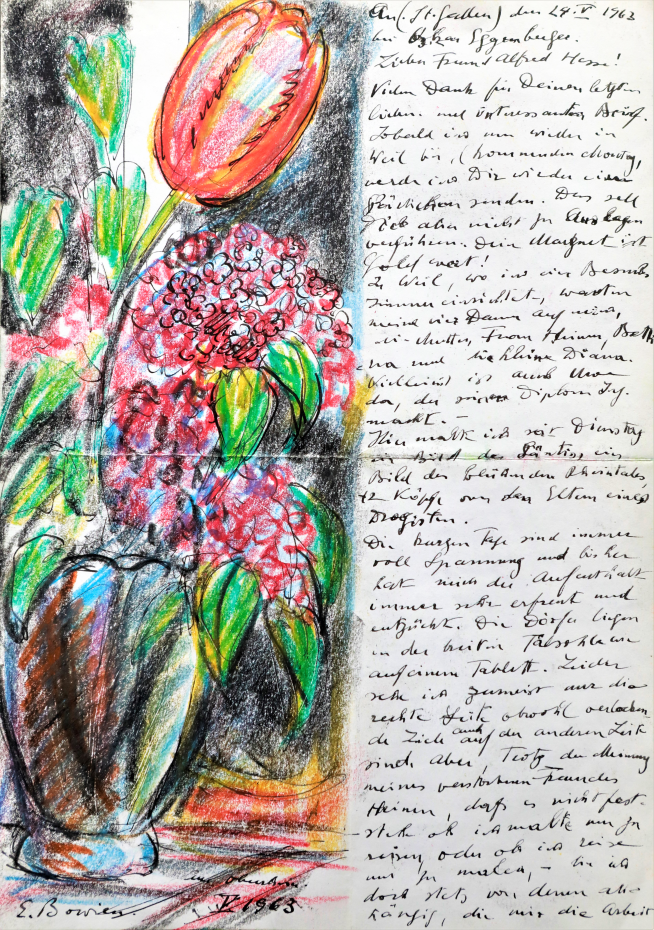 Au (St. Gallen) den 24. V 1963
bei Oskar Eggenberger.
Lieber Freund Alfred Hesse!
Vielen Dank für Deinen letzten
lieben und interessanten Brief.
Sobald ich nun wieder in
Weil bin, (kommenden Montag,
werde ich Dir wieder einen
senden. Das soll
Dich aber nicht zu Auslagen
verführen. Dein Magnet ist
Gold wert!
In Weil, wo ich ein
zimmer einrichtet, warten
meine vier Damen auf mich,
die Mutter, Frau Heinen, Betti
na und die kleine Diana.
Vielleicht ist auch Uwe
da, der seinen Diplom Ing.
macht. –
Hier malte ich seit Dienstag
ein Bild des Säntis, ein
Bild des blühenden Rheintales,
2 Köpfe von den Eltern eines
Drogisten.
Die kurzen Tage sind immer
voll Spannung und bisher
hat mich der Aufenthalt
immer sehr erfreut und
entzückt. Die Dörfer liegen
in der breiten Talsohle wie
auf einem Tablett. Leider
sehe ich zumeist nur die
rechte Seite obwohl verlocken-
de Ziele auch auf der anderen Seite
sind. Aber, trotz der Meinung
meines verstorbenen Freundes
Heinen, daß es nicht fest-
stehe ob ich malte um zu
reisen, oder ob ich reise
um zu malen, – bin ich
doch stets von denen ab-
hängig, die mir die Arbeit
V 1963
E. Bowien.